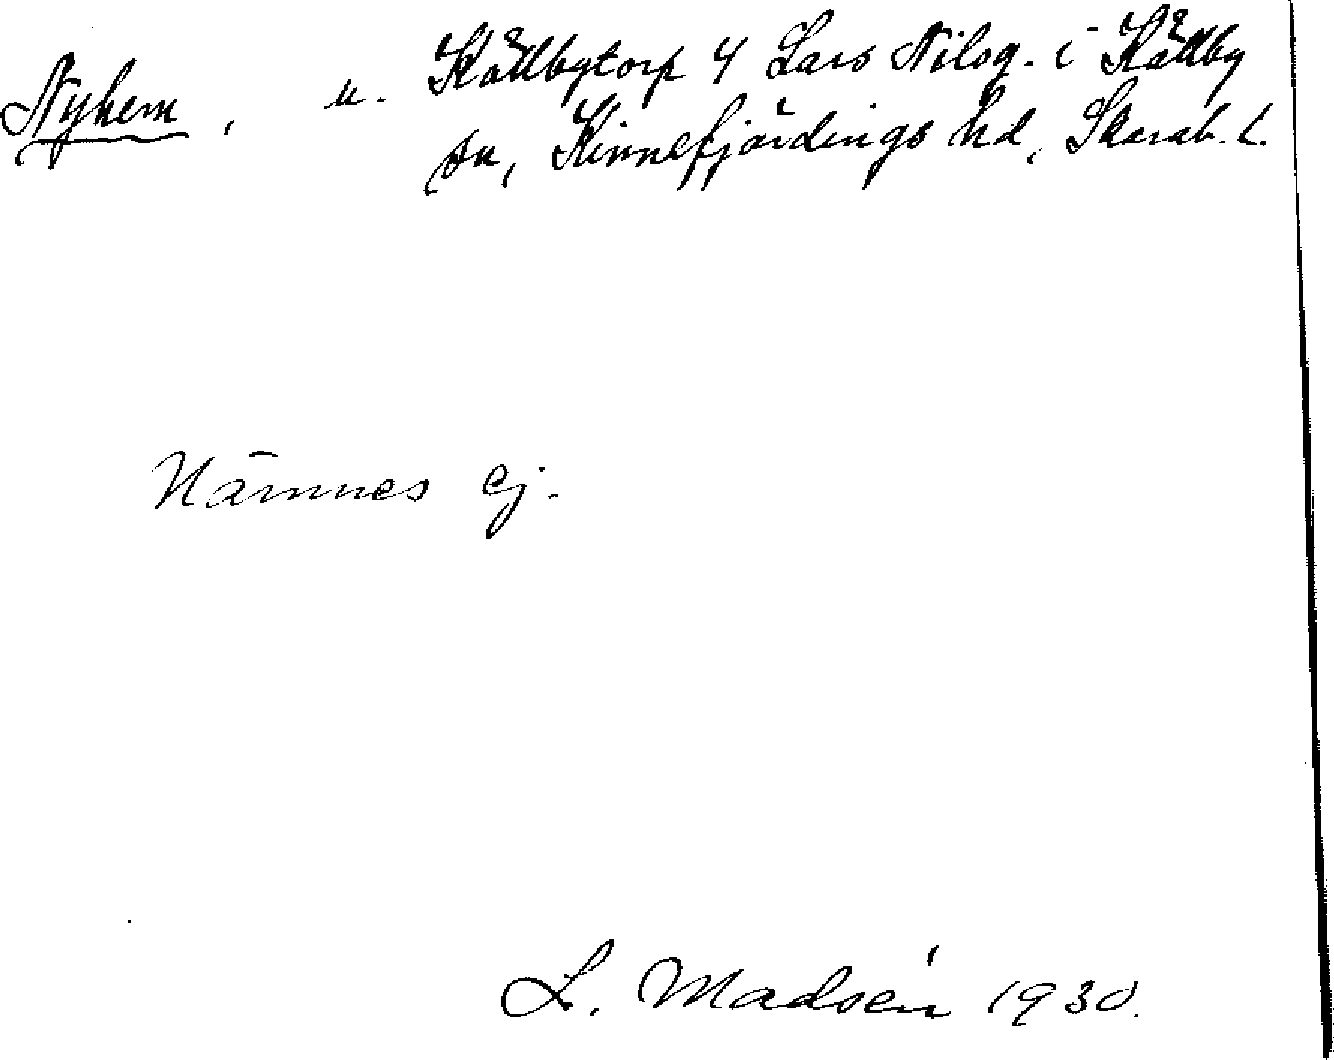 Nyhem, u. Källbytorp 4 Lars Nilsg. i Källby
sn, Kinnefjärdings hd, Skarab. L.
Nämnes ej.
L. Madsén 1930.